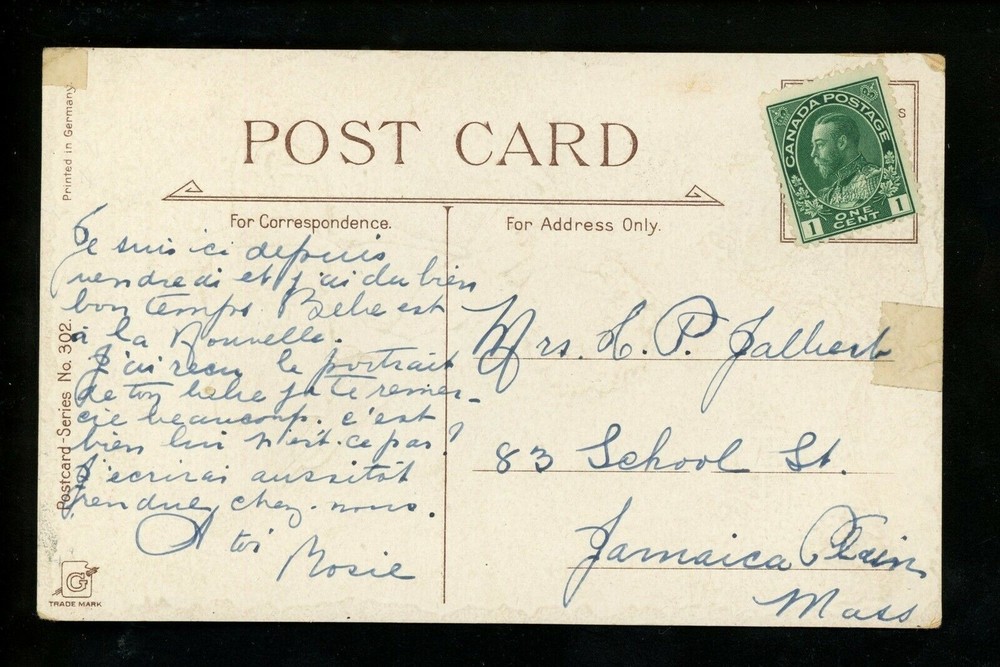 POST CARD
Printed in Germany.
CANADA POSTAGE
ONE
CENT
1 1
S
For Correspondence.
For Address Only.
Je suis ici depuis
vendredi et j'ai du bien
bon temps. Bebe est
à la
J'ai recu le portrait
de ton bebe je te remer-
cie beaucoup. c'est
bien lui n'est-ce pas?
J'ecrirai aussitôt
rendue chez-nous.
A toi
Rosie
Mrs. H. P. Jalbert
83 School St.
Jamaica Plain
Mass
Postcard-Series No. 302.
G
TRADE MARK